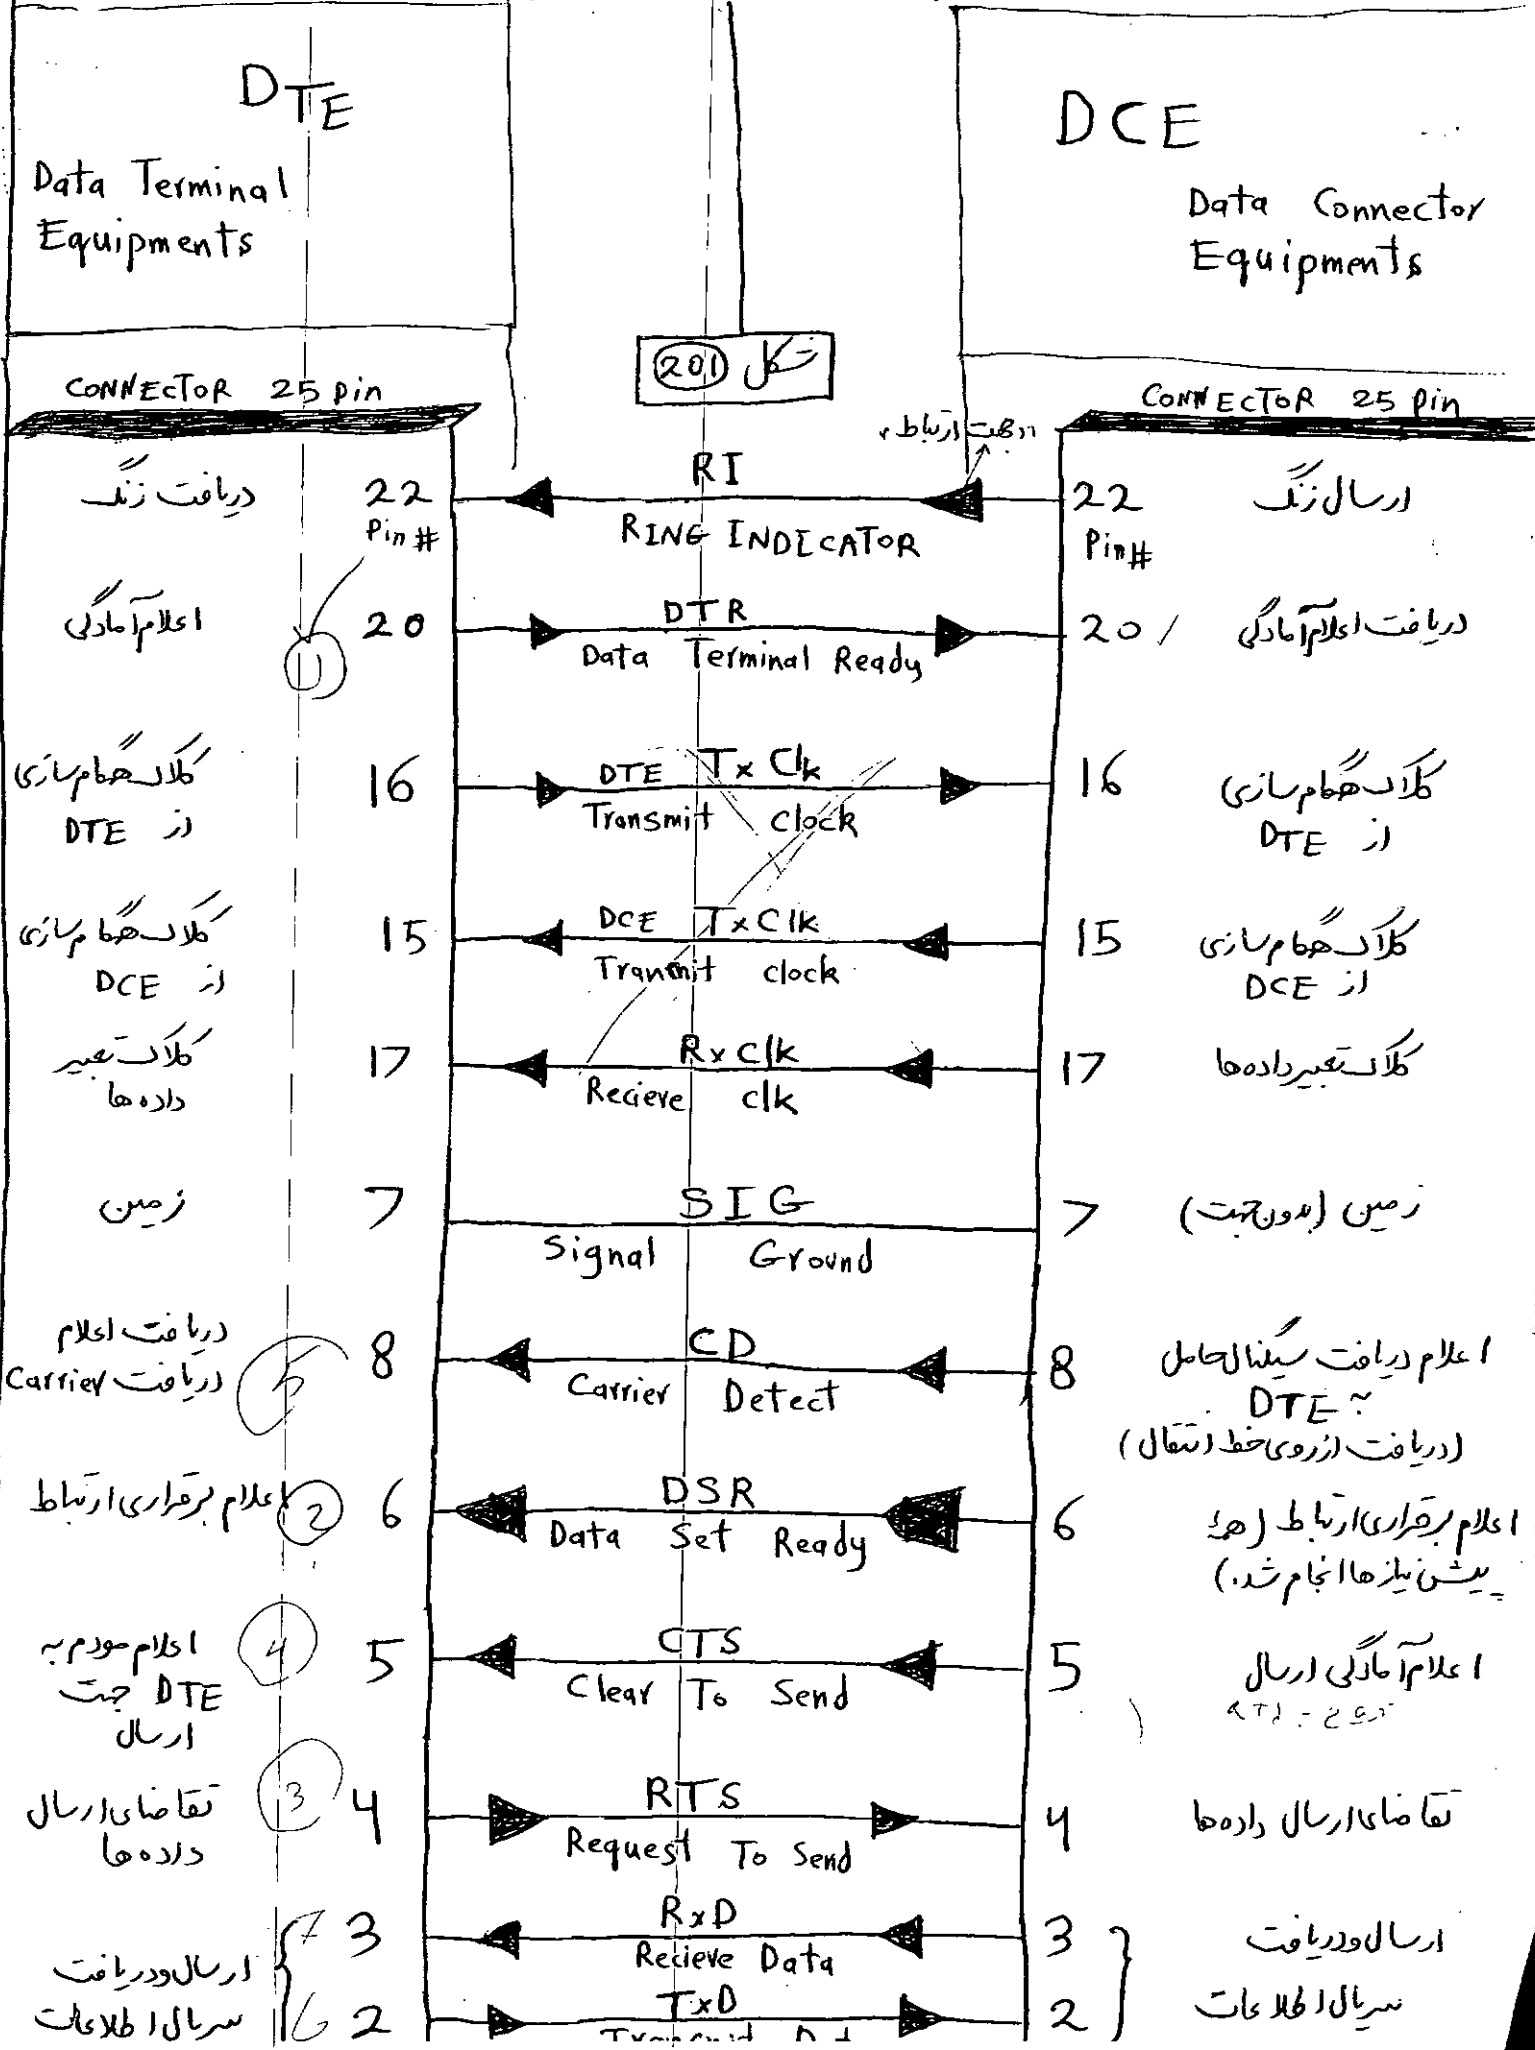 DTE
Data Terminal
Equipments
DCE
Data Connector
Equipments
شکل 201
CONNECTOR 25 pin
CONNECTOR 25 Pin
جهت ارتباط
دریافت زنگ
22
Pin #
RI
RING INDICATOR
22
Pin#
ارسال زنگ
اعلام آمادگی
1
20
DTR
Data Terminal Ready
20
دریافت اعلام آمادگی
کلاک همگام سازی
از DTE
16
DTE Tx Clk
Transmit clock
16
کلاک همگام سازی
از DTE
کلاک همگام سازی
از DCE
15
DCE TxClk
Transmit clock
15
کلاک همگام سازی
از DCE
کلاک تعبیر
داده ها
17
Rx Clk
Recieve clk
17
کلاک تعبیر داده ها
زمین
7
SIG
Signal Ground
7
زمین (بدون جهت)
دریافت اعلام
دریافت Carrier
5
8
CD
Carrier Detect
8
اعلام دریافت سیگنال حامل
به DTE
(دریافت از روی خط انتقال)
اعلام برقراری ارتباط
2
6
DSR
Data Set Ready
6
اعلام برقراری ارتباط (همه
پیش نیازها انجام شد.)
اعلام مودم به
DTE جهت
ارسال
4
5
CTS
Clear To Send
5
اعلام آمادگی ارسال
تقاضای ارسال
داده ها
3
4
RTS
Request To Send
4
تقاضای ارسال داده ها
ارسال و دریافت
سریال اطلاعات
7
3
RxD
Recieve Data
3
6
2
TxD
2
ارسال و دریافت
سریال اطلاعات